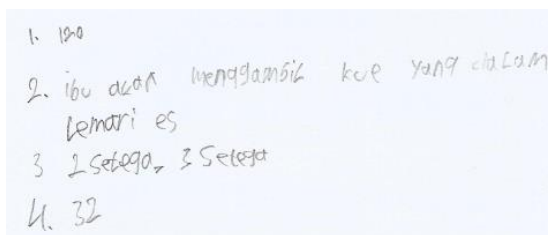 1. 120
2. ibu akan menggambil kue yang dalam
lemari es
3 2 Setega, 3 Setega
4. 32